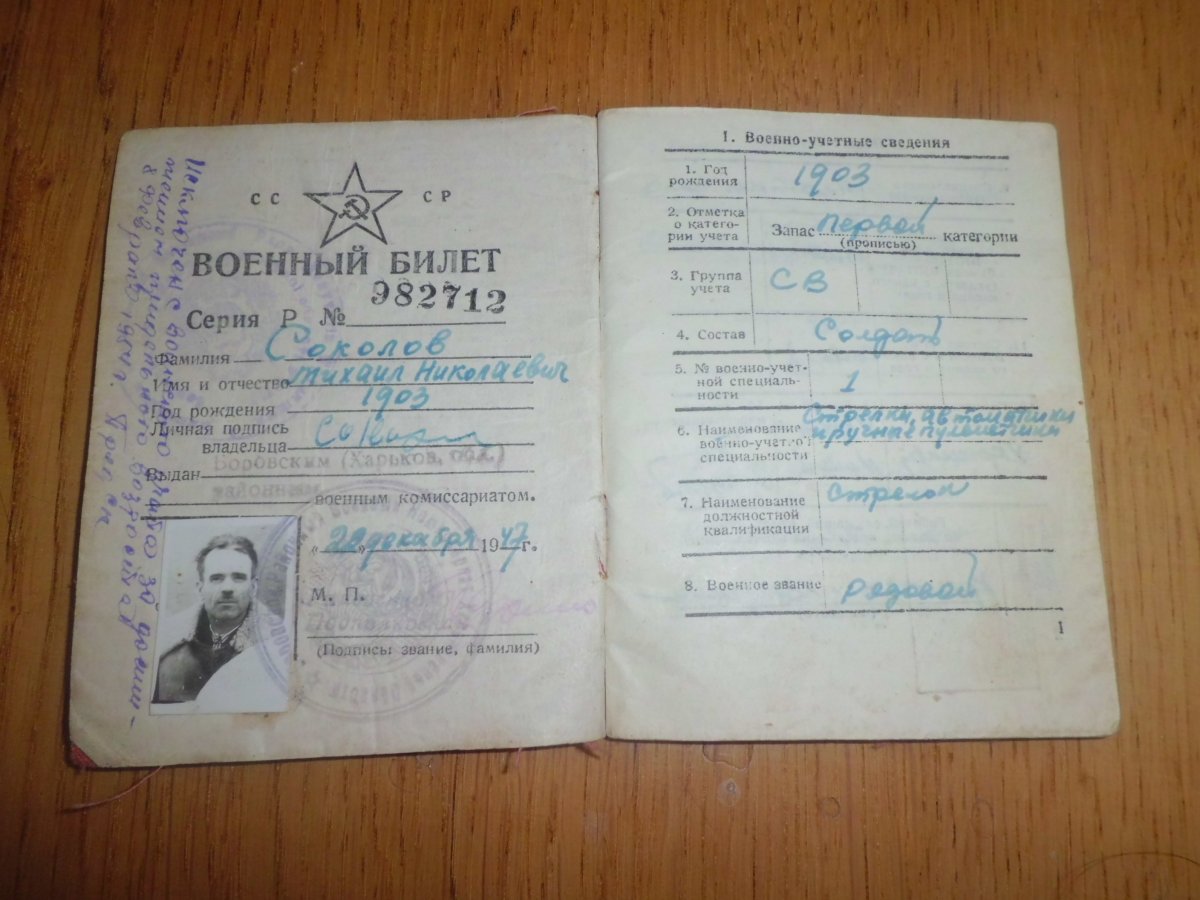 СС СР
ВОЕННЫЙ БИЛЕТ
Серия Р № 982712
Фамилия Соколов
Имя и отчество Михаил Николаевич
Год рождения 1903
Личная подпись
владельца
Выдан Боровским (Харьков. обл.)
районным
военным комиссариатом.
„22" декабря 1947г.
М. П.
Подполковник
(Подписы звание, фамилия)
Исключен с воинского учета за достижением предельного возраста
8 февраля
I. Военно-учетные сведения
1. Год
рождения 1903
2. Отметка
о катего-
рии учета
Запас первой категории
(прописью)
3. Группа
учета СВ
4. Состав Солдат
5. № военно-учет-
ной специаль-
ности 1
6. Наименование
военно-учетной
специальности
Стрелки, автоматчики
и ручные пулеметчики
7. Наименование
должностной
квалификации
Стрелок
8. Военное звание рядовой
1